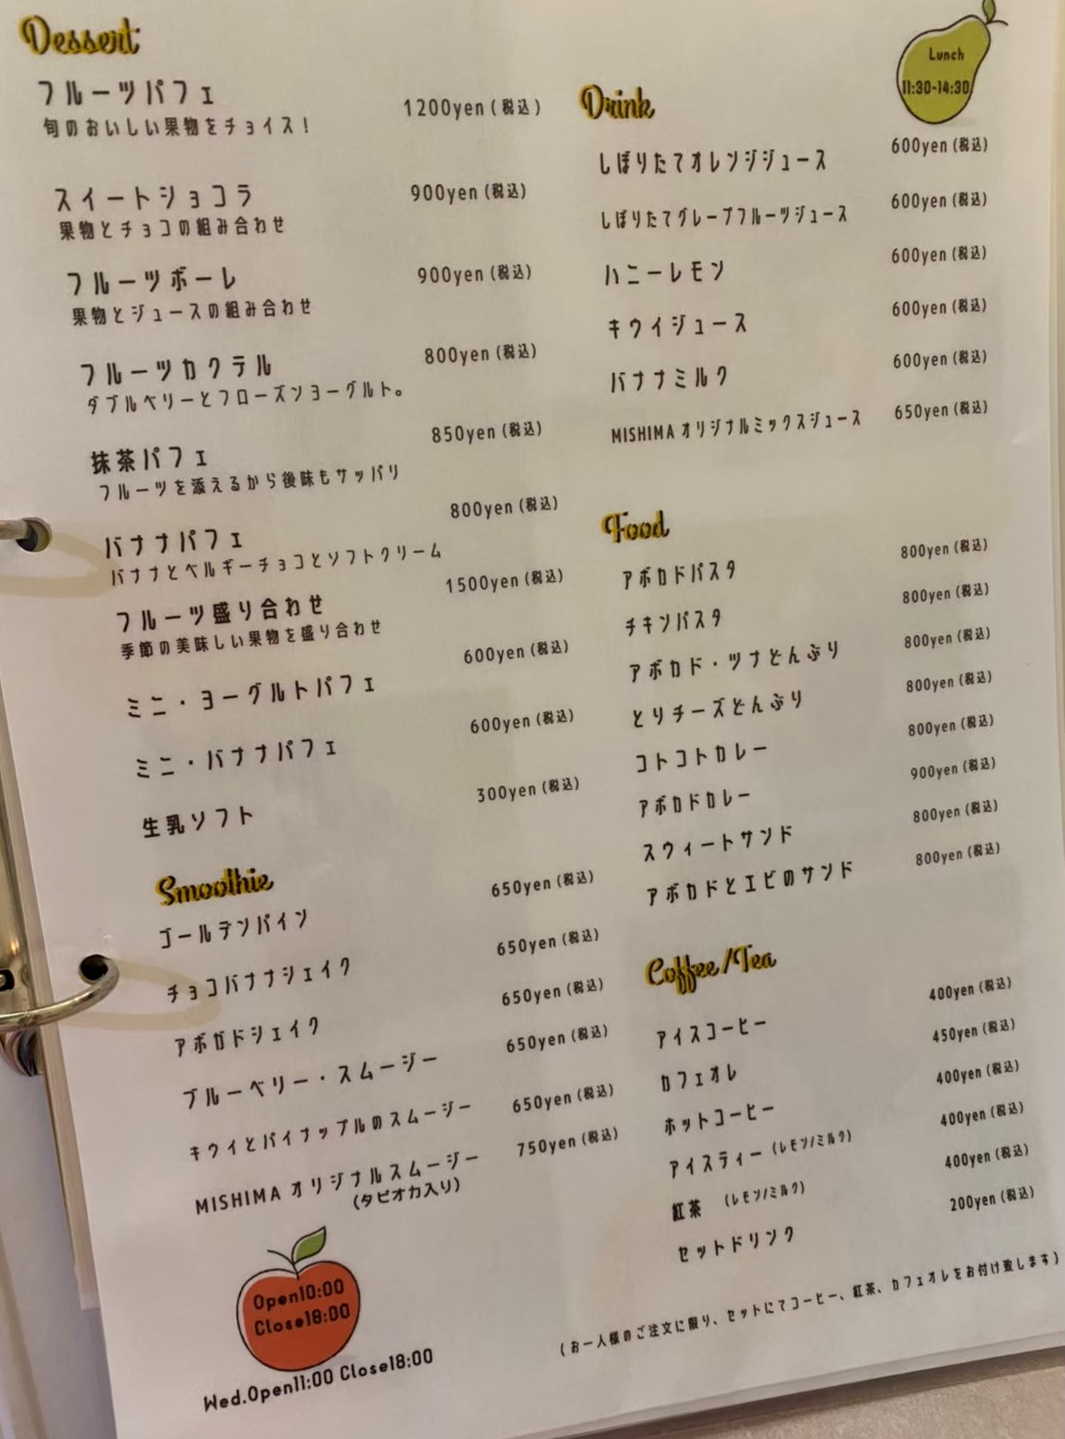 Dessert
フルーツパフェ 1200yen(税込)
旬のおいしい果物をチョイス!
スイートショコラ 900yen(税込)
果物とチョコの組み合わせ
フルーツボーレ 900yen(税込)
果物とジュースの組み合わせ
フルーツカクテル 800yen(税込)
ダブルベリーとフローズンヨーグルト。
抹茶パフェ 850yen(税込)
フルーツを添えるから後味もサッパリ
バナナパフェ 800yen(税込)
バナナとベルギーチョコとソフトクリーム
フルーツ盛り合わせ 1500yen(税込)
季節の美味しい果物を盛り合わせ
ミニ・ヨーグルトパフェ 600yen(税込)
ミニ・バナナパフェ 600yen(税込)
生乳ソフト 300yen(税込)
Smoothie
ゴールデンパイン 650yen(税込)
チョコバナナシェイク 650yen(税込)
アボガドシェイク 650yen(税込)
ブルーベリー・スムージー 650yen(税込)
キウイとパイナップルのスムージー 650yen(税込)
MISHIMA オリジナルスムージー 750yen(税込)
(タピオカ入り)
Open10:00
Close18:00
Wed.Open11:00 Close18:00
Lunch
11:30-14:30
Drink
しぼりたてオレンジジュース 600yen(税込)
しぼりたてグレープフルーツジュース 600yen(税込)
ハニーレモン 600yen(税込)
キウイジュース 600yen(税込)
バナナミルク 600yen(税込)
MISHIMA オリジナルミックスジュース 650yen(税込)
Food
アボカドパスタ 800yen(税込)
チキンパスタ 800yen(税込)
アボカド・ツナどんぶり 800yen(税込)
とりチーズどんぶり 800yen(税込)
コトコトカレー 800yen(税込)
アボカドカレー 900yen(税込)
スウィートサンド 800yen(税込)
アボカドとエビのサンド 800yen(税込)
Coffee/Tea
アイスコーヒー 400yen(税込)
カフェオレ 450yen(税込)
ホットコーヒー 400yen(税込)
アイスティー(レモン/ミルク) 400yen(税込)
紅茶 (レモン/ミルク) 400yen(税込)
セットドリンク 200yen(税込)
(お一人様のご注文に限り、セットにてコーヒー、紅茶、カフェオレをお付け致します)